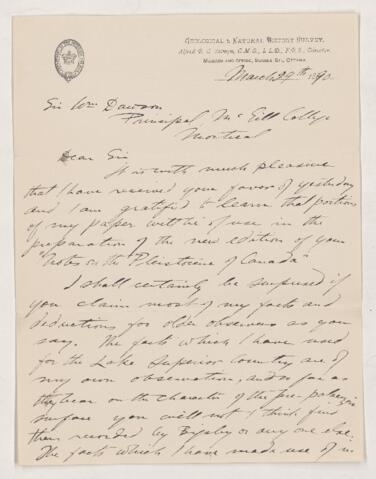 GEOLOGICAL & NATURAL HISTORY SURVEY,
Alfred R. C. Selwyn, C.M.G., LL.D., F.R.S., Director.
MUSEUM AND OFFICE, SUSSEX ST., OTTAWA.
March 29th 1890.
Sir Wm Dawson
Principal McGill College
Montreal
Dear Sir
It is with much pleasure
that I have received your favor of yesterday
and I am gratified to learn that portions
of my paper will be of use in the
preparation of the new edition of your
"Notes on the Pleistocene of Canada"
I shall certainly be surprised if
you claim most of my facts and
deductions for older observers as you
say. The facts which I have used
for the Lake Superior Country are of
my own observation, and so far as
they bear on the character of the pre-
surface you will not I think find
them recorded by Bigsby or any one else.
The facts which I have made use of in